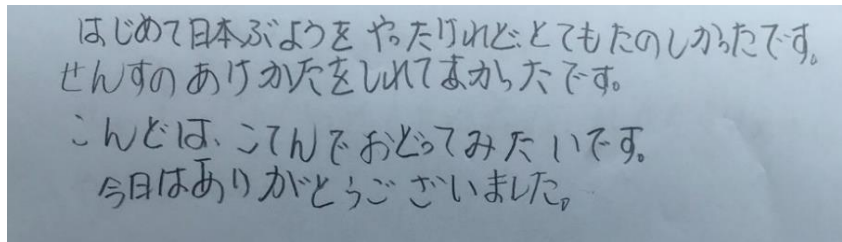 はじめて日本ぶようを やったけれど、とてもたのしかったです。
せんすの あけかたをしれてよかったです。
こんどは、こてんで おどってみたいです。
今日はありがとうございました。